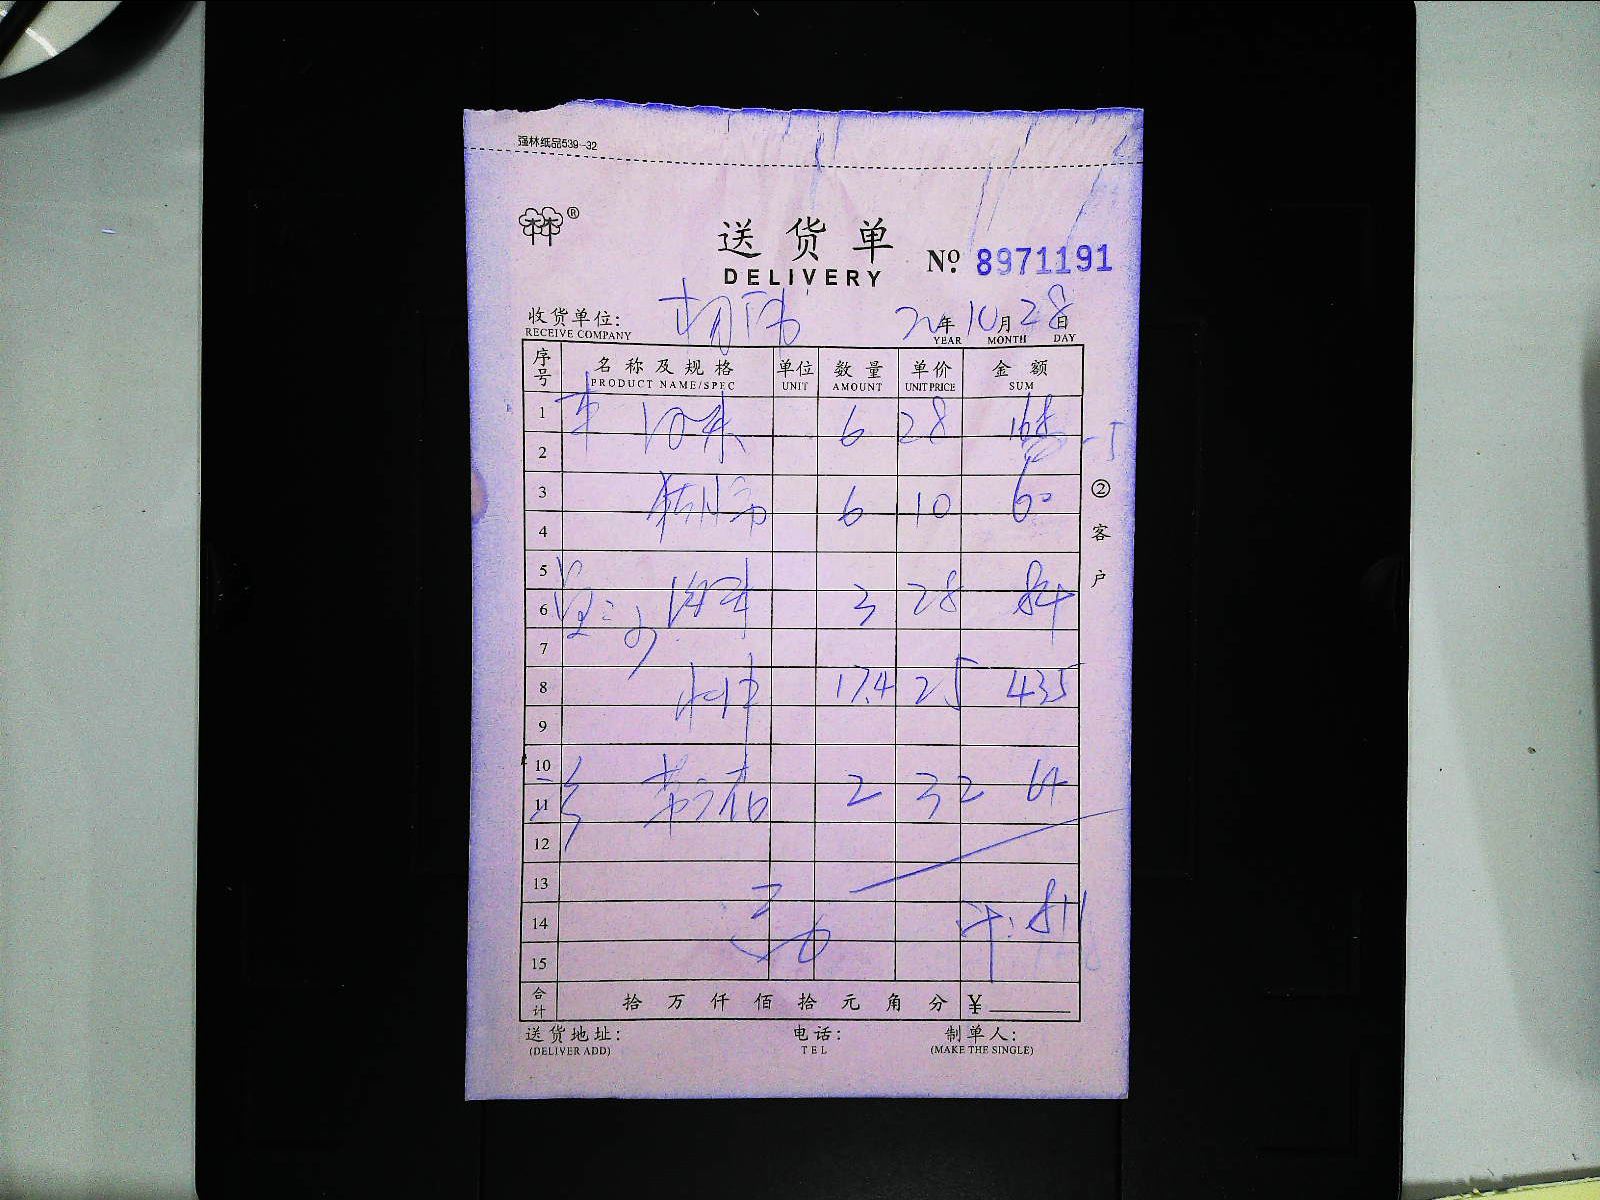 强林纸品539-32
林林®
送货单
DELIVERY
No. 8971191
收货单位:
RECEIVE COMPANY
20年10月28日
YEAR MONTH DAY
序号 名称及规格 单位 数量 单价 金额
PRODUCT NAME/SPEC UNIT AMOUNT UNIT PRICE SUM
1 6 28 168
2
3 6 10 60
4
5
6 3 28 84
7
8 17.4 25 435
9
10
11 2 32 64
12
13
14 计: 811
15
合计 拾 万 仟 佰 拾 元 角 分 ¥
②客户
送货地址: 电话: 制单人:
(DELIVER ADD) TEL (MAKE THE SINGLE)